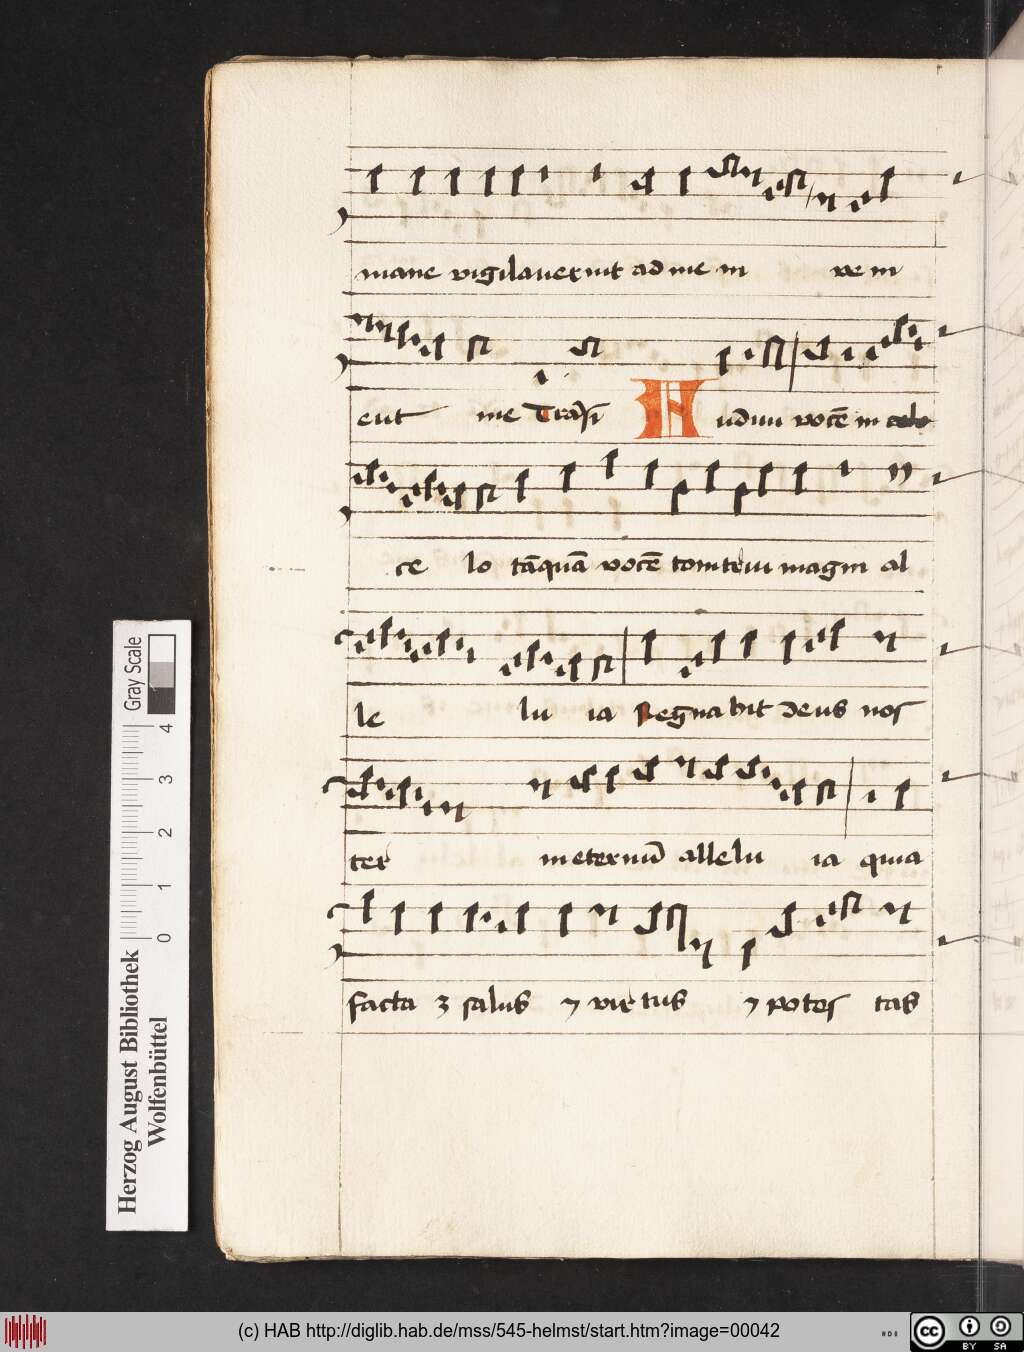 mane vigilauerint ad me in ve ni
ent me Transi Audiui vocē in celo
ce lo tāquā vocē tonitrui magni al
le lu ia Regna bit deus nos
ter in eternū allelu ia quia
facta ʒ salus ⁊ virtus ⁊ potes tas
Gray Scale
0 1 2 3 4
Herzog August Bibliothek
Wolfenbüttel
(c) HAB http://diglib.hab.de/mss/545-helmst/start.htm?image=00042
cc BY SA